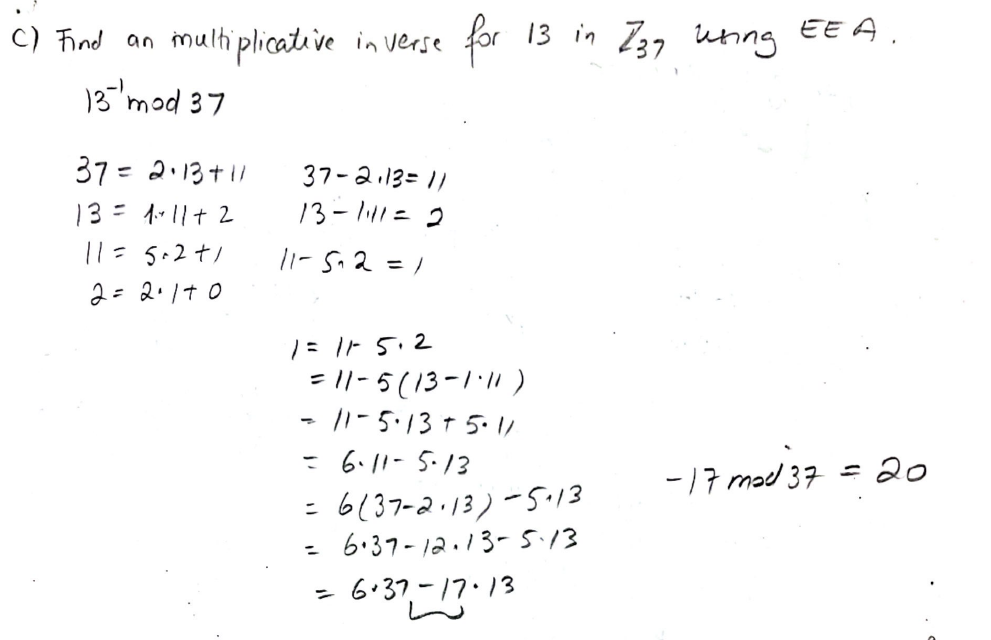 c) Find an multiplicative inverse for 13 in Z₃₇ using EEA.
13⁻¹ mod 37
37 = 2·13+11 37-2·13=11
13 = 1·11+2 13-1·11=2
11 = 5·2+1 11-5·2=1
2 = 2·1+0
1 = 11-5·2
= 11-5(13-1·11)
= 11-5·13+5·11
= 6·11-5·13
= 6(37-2·13)-5·13 -17 mod 37 = 20
= 6·37-12·13-5·13
= 6·37-17·13